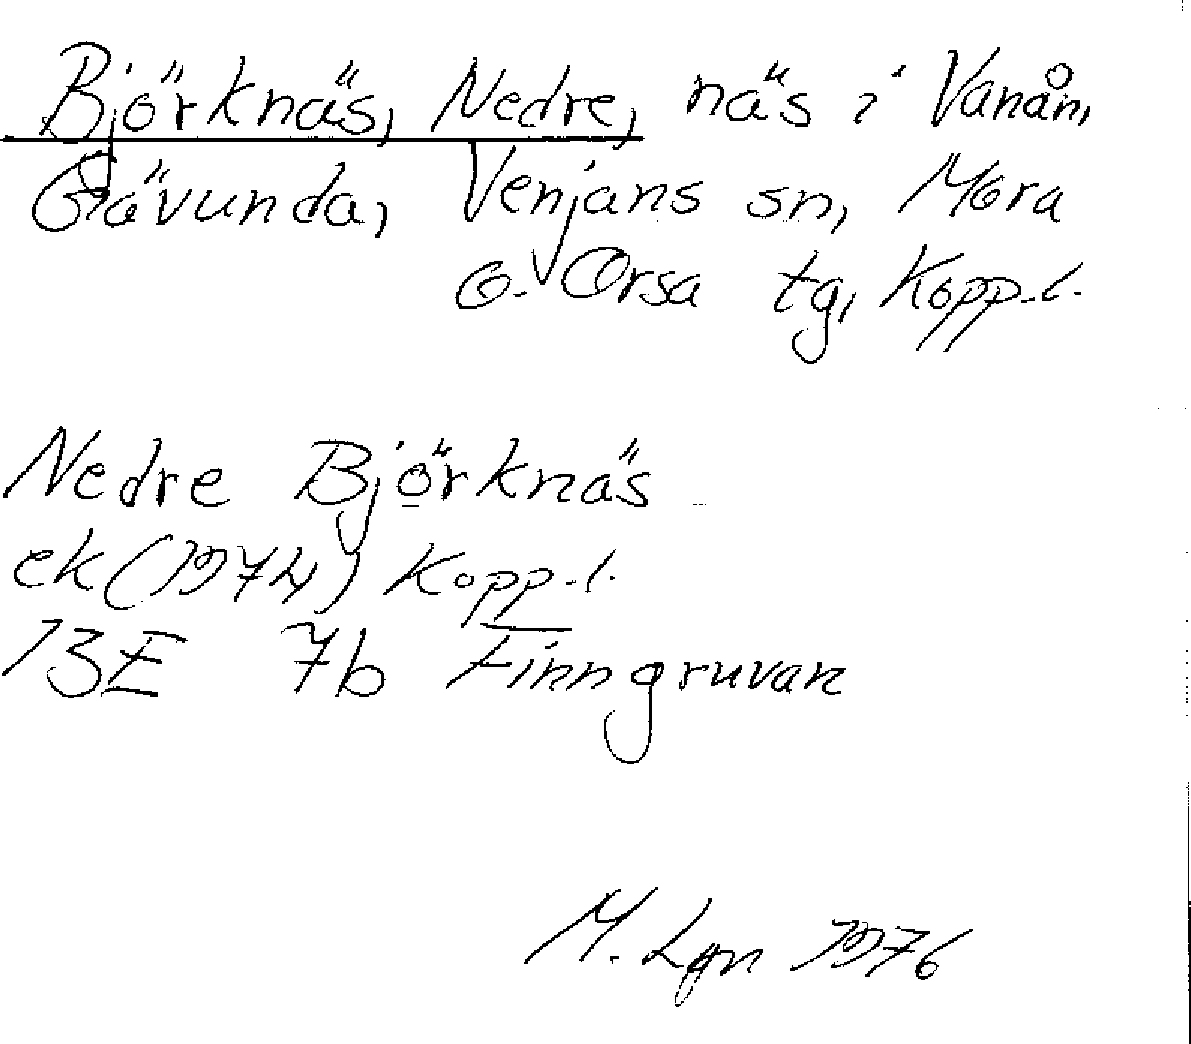 Björknäs, Nedre, näs i Vanån,
Gävunda, Venjans sn, Mora
o. Orsa tg, Kopp.l.
Nedre Björknäs
ek (1974) Kopp.l.
13E 7b Finngruvan
M. Lgn 1976